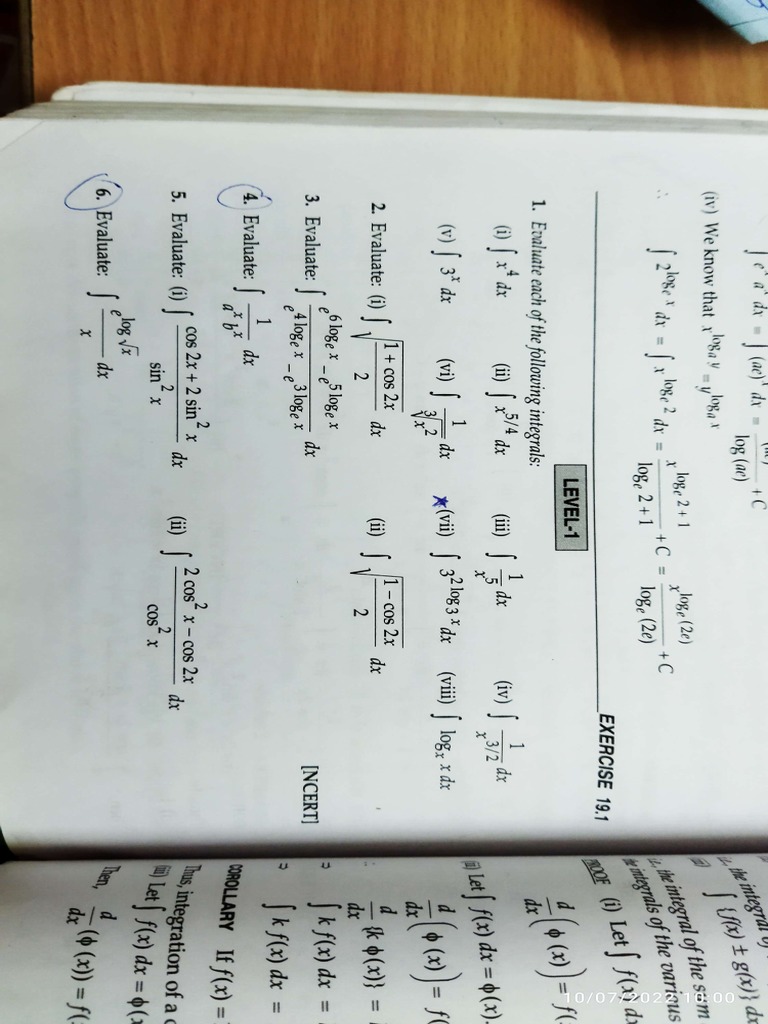 ∫ e^x a^x dx = ∫ (ae)^x dx = / log (ae) + C
(iv) We know that x^{log_a y} = y^{log_a x}
∴ ∫ 2^{log_e x} dx = ∫ x^{log_e 2} dx = x^{log_e 2 + 1} / log_e 2 + 1 + C = x^{log_e (2e)} / log_e (2e) + C
EXERCISE 19.1
LEVEL-1
1. Evaluate each of the following integrals:
(i) ∫ x^4 dx (ii) ∫ x^{5/4} dx (iii) ∫ 1/x^5 dx (iv) ∫ 1/x^{3/2} dx
(v) ∫ 3^x dx (vi) ∫ 1/∛x^2 dx ★(vii) ∫ 3^{2 log_3 x} dx (viii) ∫ log_x x dx
2. Evaluate: (i) ∫ √((1 + cos 2x)/2) dx (ii) ∫ √((1 – cos 2x)/2) dx
3. Evaluate: ∫ (e^{6 log_e x} – e^{5 log_e x}) / (e^{4 log_e x} – e^{3 log_e x}) dx [NCERT]
4. Evaluate: ∫ 1/(a^x b^x) dx
5. Evaluate: (i) ∫ (cos 2x + 2 sin^2 x)/sin^2 x dx (ii) ∫ (2 cos^2 x – cos 2x)/cos^2 x dx
6. Evaluate: ∫ e^{log √x}/x dx
i.e. the integral of
∫ {f(x) ± g(x)} dx
i.e. the integral of the sum
the integrals of the various
PROOF (i) Let ∫ f(x) dx
d/dx (ϕ (x)) = f(
(ii) Let ∫ f(x) dx = ϕ(x).
d/dx (ϕ (x)) = f(
d/dx {k ϕ(x)} =
⇒ ∫ k f(x) dx =
⇒ ∫ k f(x) dx =
COROLLARY If f(x) =
Thus, integration of a
(ii) Let ∫ f(x) dx = ϕ(x
Then, d/dx (ϕ (x)) = f(
10/07/2022 10:00